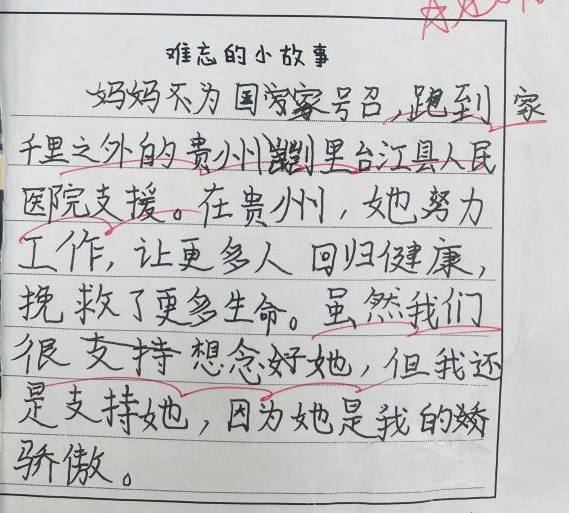 难忘的小故事
妈妈不为国家号召,跑到 家
千里之外的贵州凯里台江县人民
医院支援。在贵州,她努力
工作,让更多人回归健康,
挽救了更多生命。虽然我们
很支持想念好她,但我还
是支持她,因为她是我的娇
骄傲。